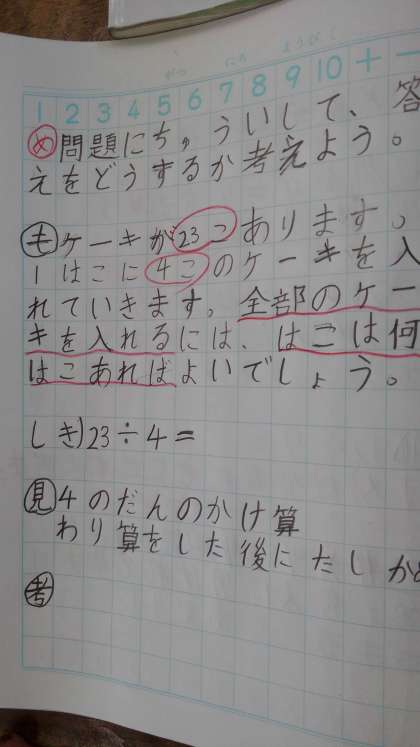 がつ にち ようび
1 2 3 4 5 6 7 8 9 10 + 一
め 問題にち,ういして、答
えをどうするか考えよう。
も ケーキが23こあります。
1はこに4このケーキを入
れていきます。全部のケー
キを入れるには、はこは何
はこあればよいでしょう。
しき)23÷4=
見 4のだんのかけ算
わり算をした後にたしか
考